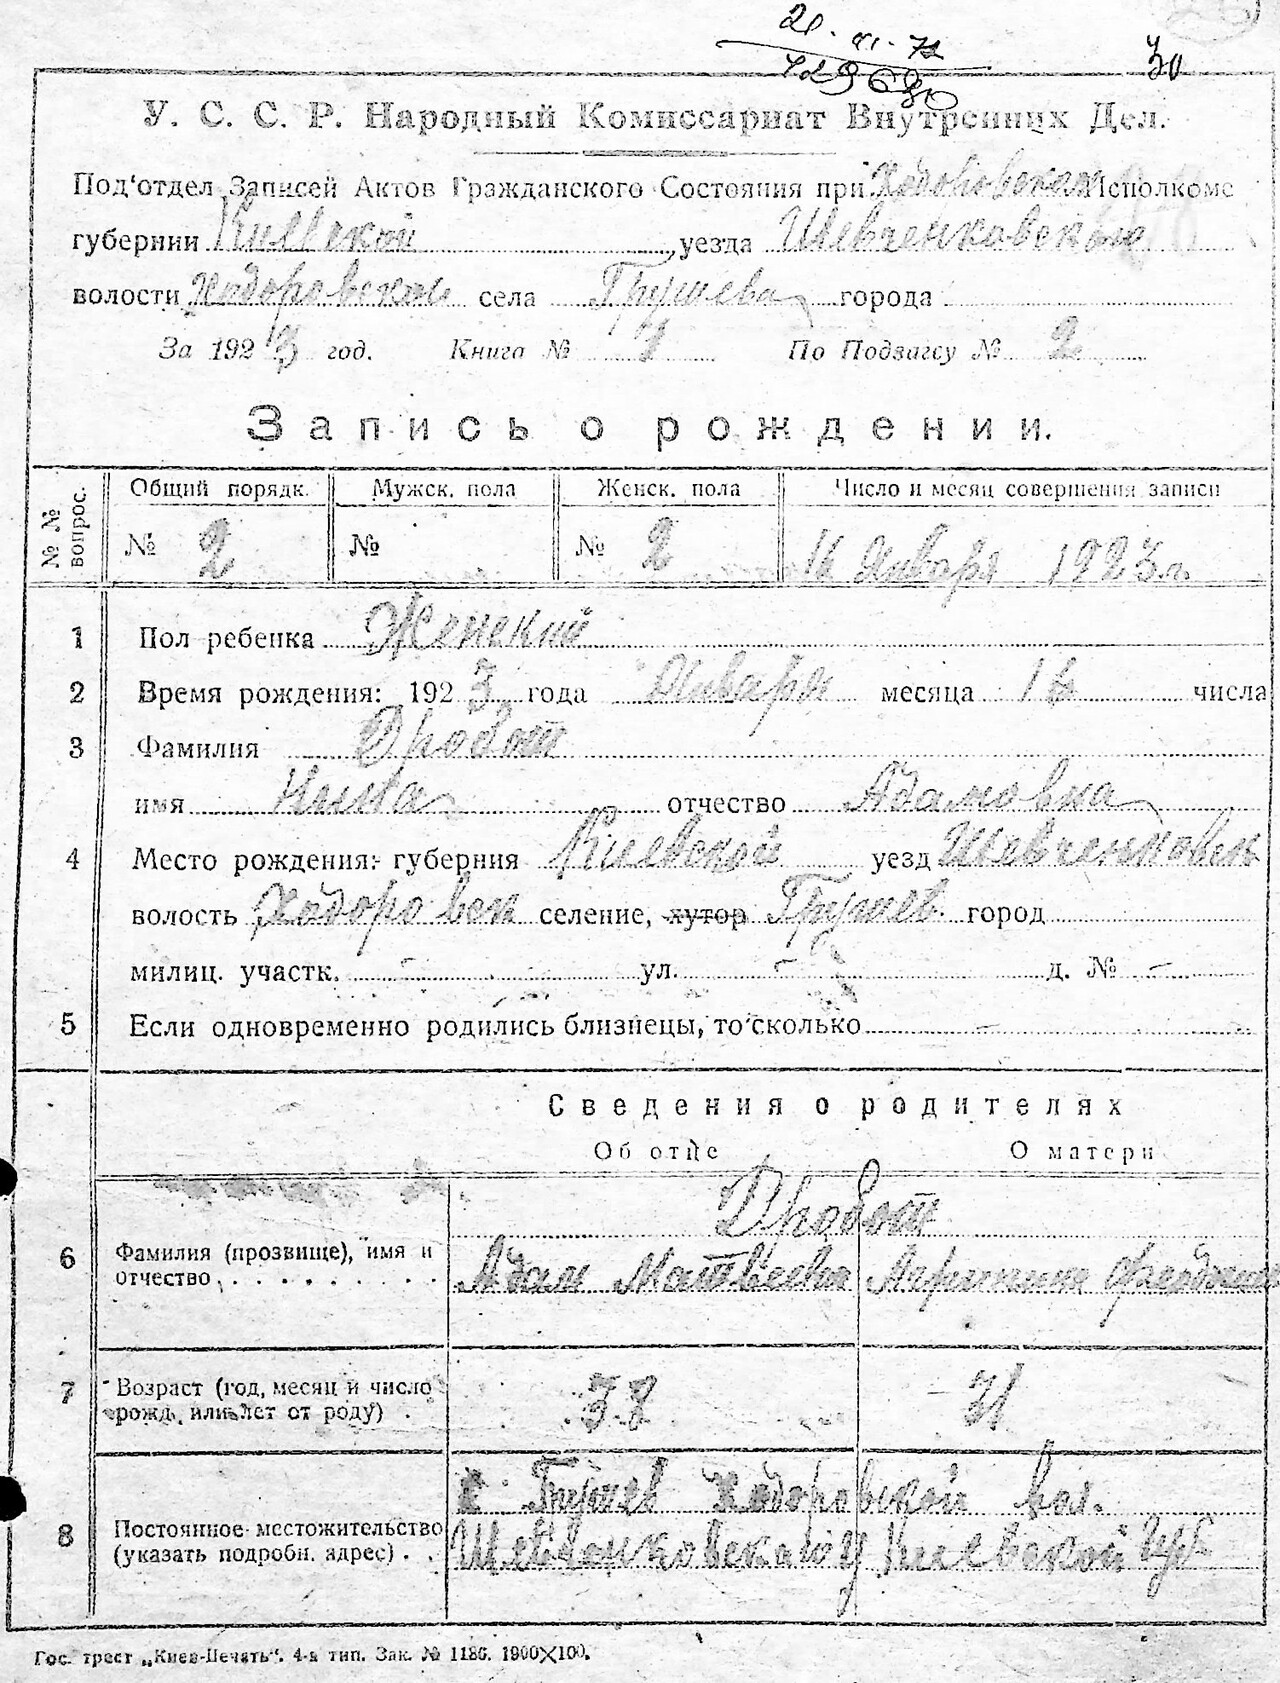 21. VI. 72
30
У. С. С. Р. Народный Комиссариат Внутренних Дел.
Под'отдел Записей Актов Гражданского Состояния при Ходоровском Исполкоме
губернии Киевской уезда Шевченковского
волости Ходоровской села Грушева города
За 1923 год. Книга № 1 По Подзагсу № 2
Запись о рождении.
№ № вопрос. Общий порядк. Мужск. пола Женск. пола Число и месяц совершения записи
№ 2 № № 2 16 Января 1923 г.
1 Пол ребенка Женский
2 Время рождения: 1923 года Января месяца 16 числа
3 Фамилия Дробот
имя Нина отчество Адамовна
4 Место рождения: губерния Киевской уезд Шевченковск
волость Ходоровск селение, хутор Грушев город
милиц. участк. - ул. - д. № -
5 Если одновременно родились близнецы, то сколько -
Сведения о родителях
Об отце О матери
Дробот
6 Фамилия (прозвище), имя и
отчество . . . . . . . . . Адам Матвеевич
7 Возраст (год, месяц и число
рожд. или лет от роду) . 38 31
с Грушев Ходоровской вол.
8 Постоянное местожительство
(указать подробн. адрес) . . Шевченковского у Киевской губ
Гос. трест „Киев-Печать". 4-я тип. Зак. № 1186. 1900X100.